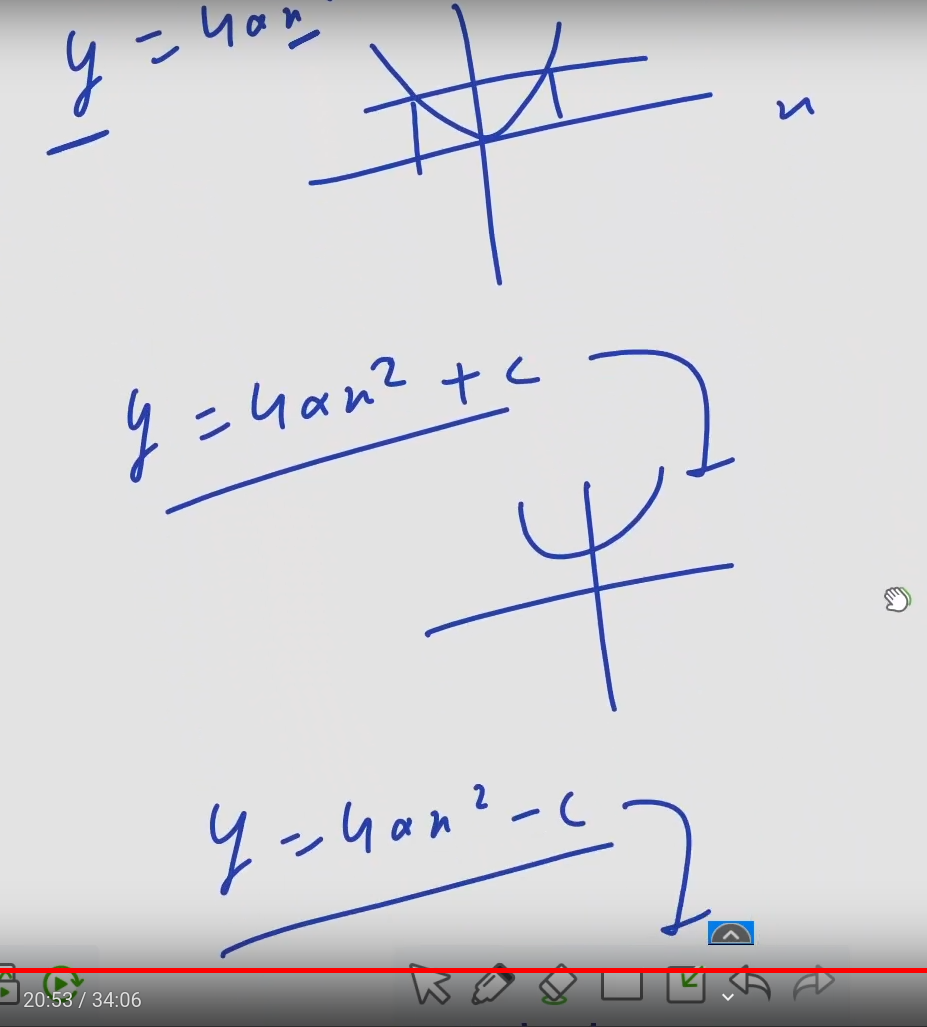 y = 4ax
x
y = 4ax² + c
y = 4ax² - c
20:53 / 34:06